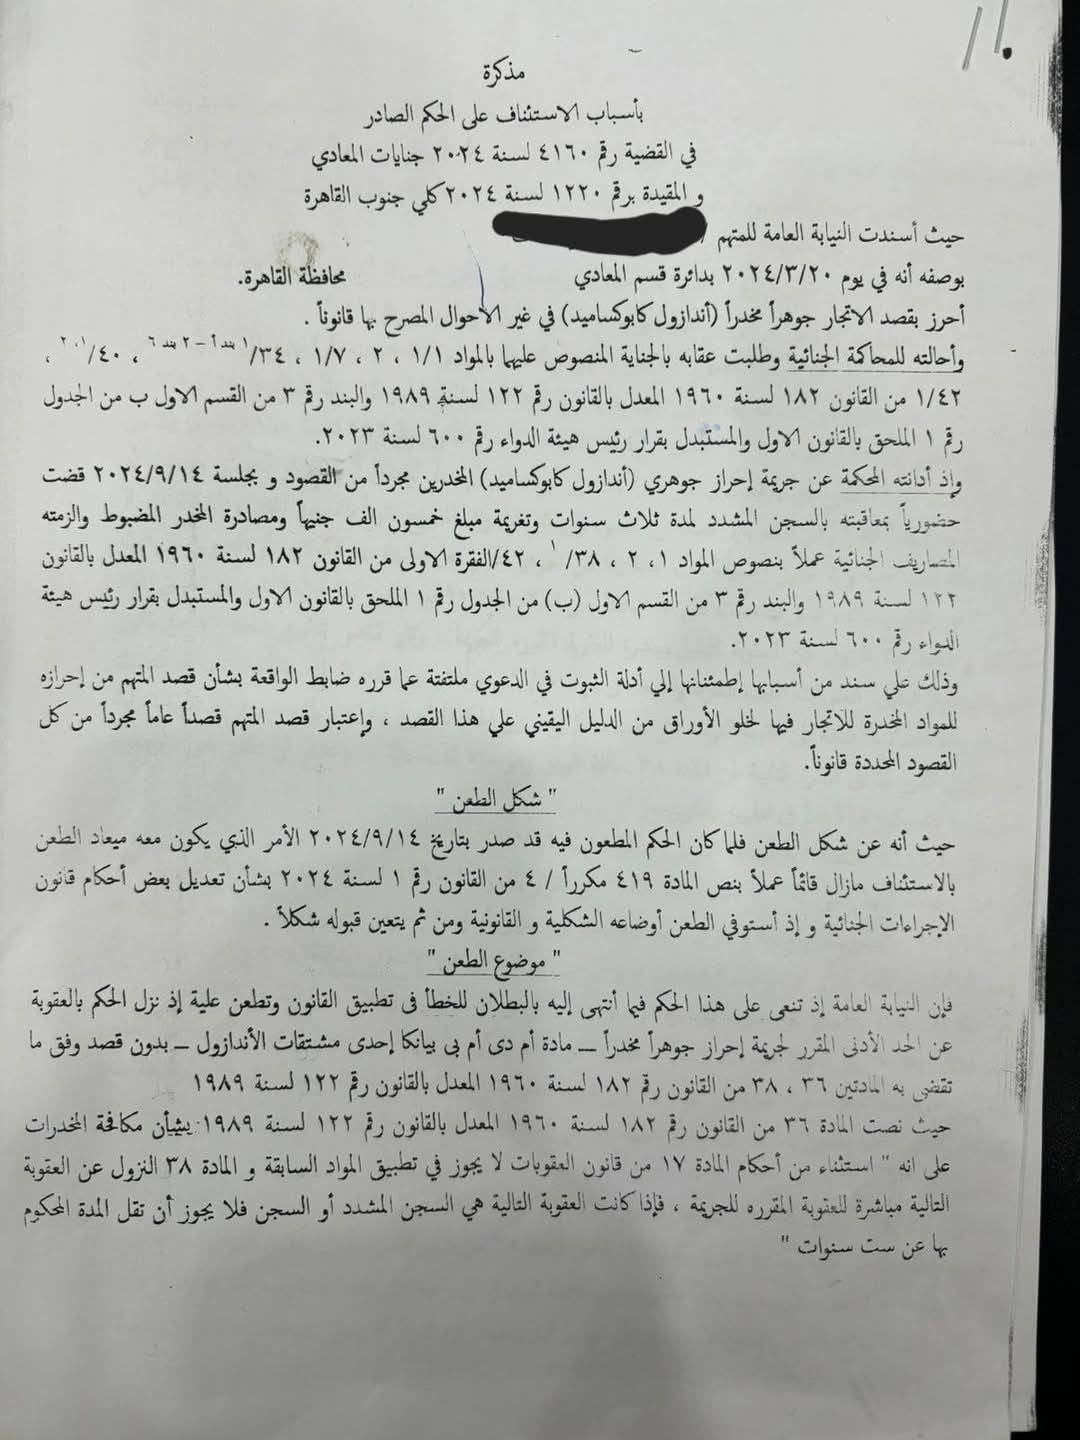 مذكرة
بأسباب الاستئناف على الحكم الصادر
في القضية رقم ٤١٦٠ لسنة ٢٠٢٤ جنايات المعادي
و المقيدة برقم ١٢٢٠ لسنة ٢٠٢٤ كلي جنوب القاهرة
حيث أسندت النيابة العامة للمتهم /
بوصفه أنه في يوم ٢٠٢٤/٣/٢٠ بدائرة قسم المعادي محافظة القاهرة.
أحرز بقصد الاتجار جوهراً مخدراً (أندازول كابوكساميد) في غير الأحوال المصرح بها قانوناً .
وأحالته للمحاكمة الجنائية وطلبت عقابه بالجناية المنصوص عليهما بالمواد ١/١ ، ٢ ، ١/٧ ، ١/٣٤ بند أ – ٢ بند ٦ ، ١/٤٠، ٢ ،
١/٤٢ من القانون ١٨٢ لسنة ١٩٦٠ المعدل بالقانون رقم ١٢٢ لسنة ١٩٨٩ والبند رقم ٣ من القسم الاول ب من الجدول
رقم ١ الملحق بالقانون الاول والمستبدل بقرار رئيس هيئة الدواء رقم ٦٠٠ لسنة ٢٠٢٣.
وإذ أدانته المحكمة عن جريمة إحراز جوهري (أندازول كابوكساميد) المخدرين مجرداً من القصود و بجلسة ٢٠٢٤/٩/١٤ قضت
حضورياً بمعاقبته بالسجن المشدد لمدة ثلاث سنوات وتغريمة مبلغ خمسون الف جنيهاً ومصادرة المخدر المضبوط والزمته
المصاريف الجنائية عملاً بنصوص المواد ١، ٢ ، ٣٨/ ١ ، ٤٢/الفقرة الاولى من القانون ١٨٢ لسنة ١٩٦٠ المعدل بالقانون
١٢٢ لسنة ١٩٨٩ والبند رقم ٣ من القسم الاول (ب) من الجدول رقم ١ الملحق بالقانون الاول والمستبدل بقرار رئيس هيئة
الدواء رقم ٦٠٠ لسنة ٢٠٢٣.
وذلك علي سند من أسبابها إطمئنانها إلي أدلة الثبوت في الدعوي ملتفتة عما قرره ضابط الواقعة بشأن قصد المتهم من إحرازه
للمواد المخدرة للاتجار فيها لخلو الأوراق من الدليل اليقيني علي هذا القصد ، وإعتبار قصد المتهم قصداً عاماً مجرداً من كل
القصود المحددة قانوناً.
" شكل الطعن "
حيث أنه عن شكل الطعن فلما كان الحكم المطعون فيه قد صدر بتاريخ ٢٠٢٤/٩/١٤ الأمر الذي يكون معه ميعاد الطعن
بالاستئناف مازال قائماً عملاً بنص المادة ٤١٩ مكرراً / ٤ من القانون رقم ١ لسنة ٢٠٢٤ بشأن تعديل بعض أحكام قانون
الإجراءات الجنائية و إذ أستوفي الطعن أوضاعه الشكلية و القانونية ومن ثم يتعين قبوله شكلاً .
" موضوع الطعن "
فإن النيابة العامة إذ تنعى على هذا الحكم فيما أنتهى إليه بالبطلان للخطأ فى تطبيق القانون وتطعن علية إذ نزل الحكم بالعقوبة
عن الحد الأدنى المقرر لجريمة إحراز جوهراً مخدراً ــ مادة أم دى أم بى بيانكا إحدى مشتقات الأندازول ــ بدون قصد وفق ما
تقضى به المادتين ٣٦ ، ٣٨ من القانون رقم ١٨٢ لسنة ١٩٦٠ المعدل بالقانون رقم ١٢٢ لسنة ١٩٨٩
حيث نصت المادة ٣٦ من القانون رقم ١٨٢ لسنة ١٩٦٠ المعدل بالقانون رقم ١٢٢ لسنة ١٩٨٩ بشأن مكافحة المخدرات
على انه " استثناء من أحكام المادة ١٧ من قانون العقوبات لا يجوز في تطبيق المواد السابقة و المادة ٣٨ النزول عن العقوبة
التالية مباشرة للعقوبة المقرره للجريمة ، فإذا كانت العقوبة التالية هي السجن المشدد أو السجن فلا يجوز أن تقل المدة المحكوم
بها عن ست سنوات "